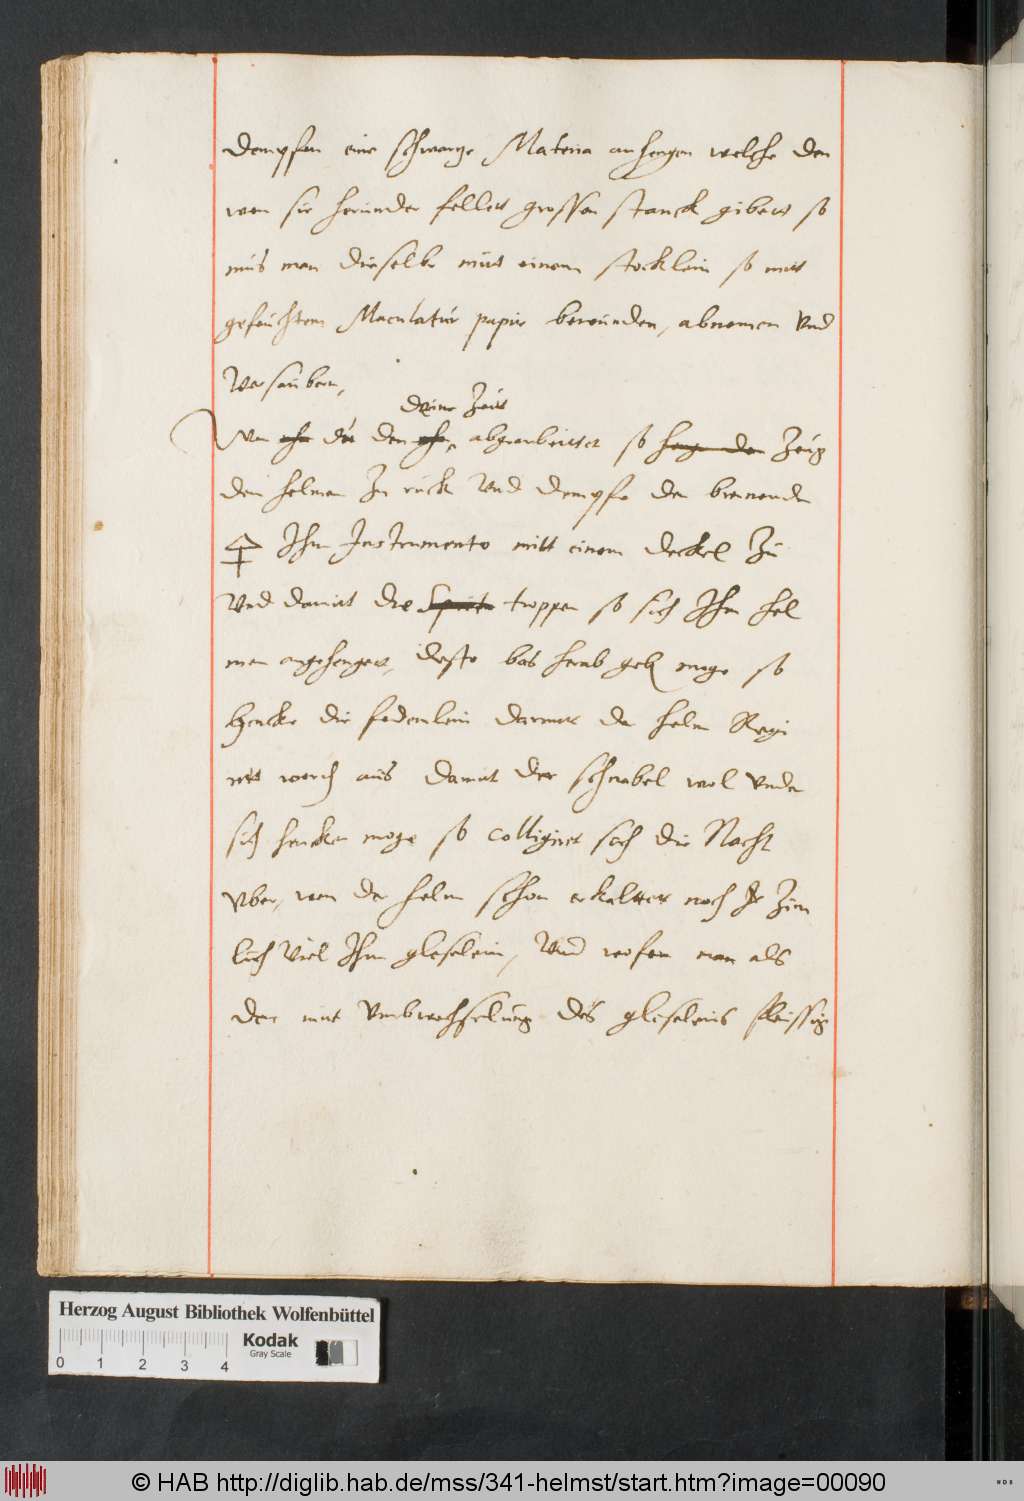 dempfen eine schwartze Materia anhengen welche den
wen sie herunder fellett grossen stanck gibett so
mus man dieselbe mitt einem stocklein so mitt
gefeuchtem Maculatur papir bewunden, abnemen Vnd
Versaubern,
deine Zeitt
Wen du den abgearbeittet so Zeug
den helmen Zu ruck Vnd dempfe den brennenden
Ihm Instrumento mitt einem deckel Zu
Vnd damitt die troppen so sich Ihm hel
men angehengett, desto bas herab moge so
hencke die fedemlein da helm Regi
rett werth aus damit der schnabel wol Vnder
sich hencken moge so colligirt sich die Nacht
Vber, wen der helm schon erkalttet noch Zim
lich Viel Ihm gleselein, Vnd wofern man als
der mit Vmbwechselung des gleseleins fleissig
Herzog August Bibliothek Wolfenbüttel
Kodak
Gray Scale
0 1 2 3 4
© HAB http://diglib.hab.de/mss/341-helmst/start.htm?image=00090